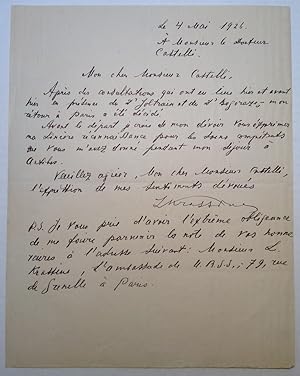 Le 4 Mai 1926.
À Monsieur le Docteur
Castelli.
Mon cher Monsieur Castelli,
Après des consultations qui ont eu lieu hier et avant
hier en présence de Dr et de Dr mon
retour à Paris a été décidé.
Avant le départ je crois de mon devoir vous exprimer
ma sincère reconnaissance pour les soins compétents
que vous m'avez donné pendant mon séjour à
Antibes.
Veuillez agréer, Mon cher Monsieur Castelli,
l'expression de mes sentiments dévoués
P.S. Je vous prie d'avoir l'extrême obligeance
de me faire parvenir la note de vos hono
raires à l'adresse suivant: Monsieur L.
Krassine, L'ambassade de U.R.S.S., 79, rue
de Grenelle à Paris.